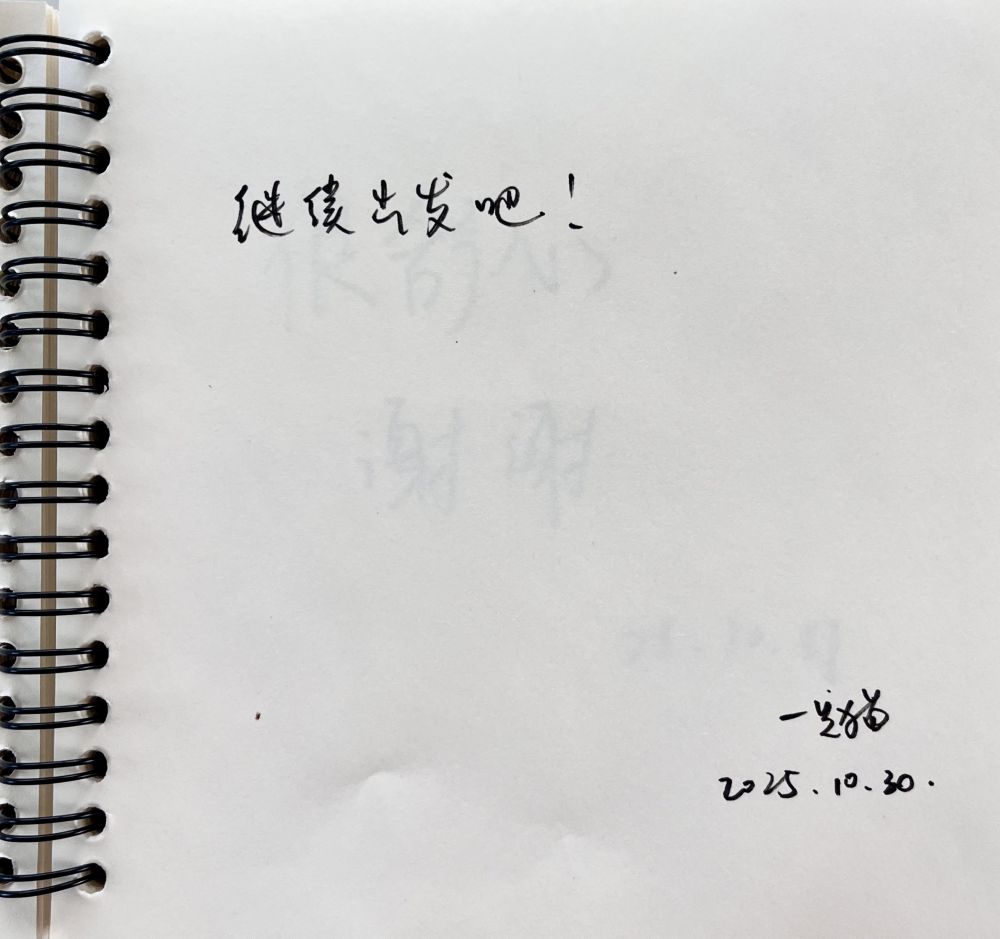 继续出发吧！
谢谢
一只猫
2025.10.30.